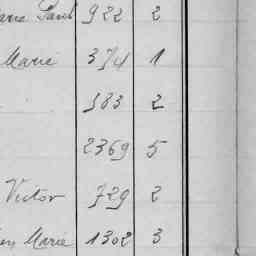 Paul 922 2
Marie 374 1
183 2
2369 5
Victor 729 2
Marie 1302 3